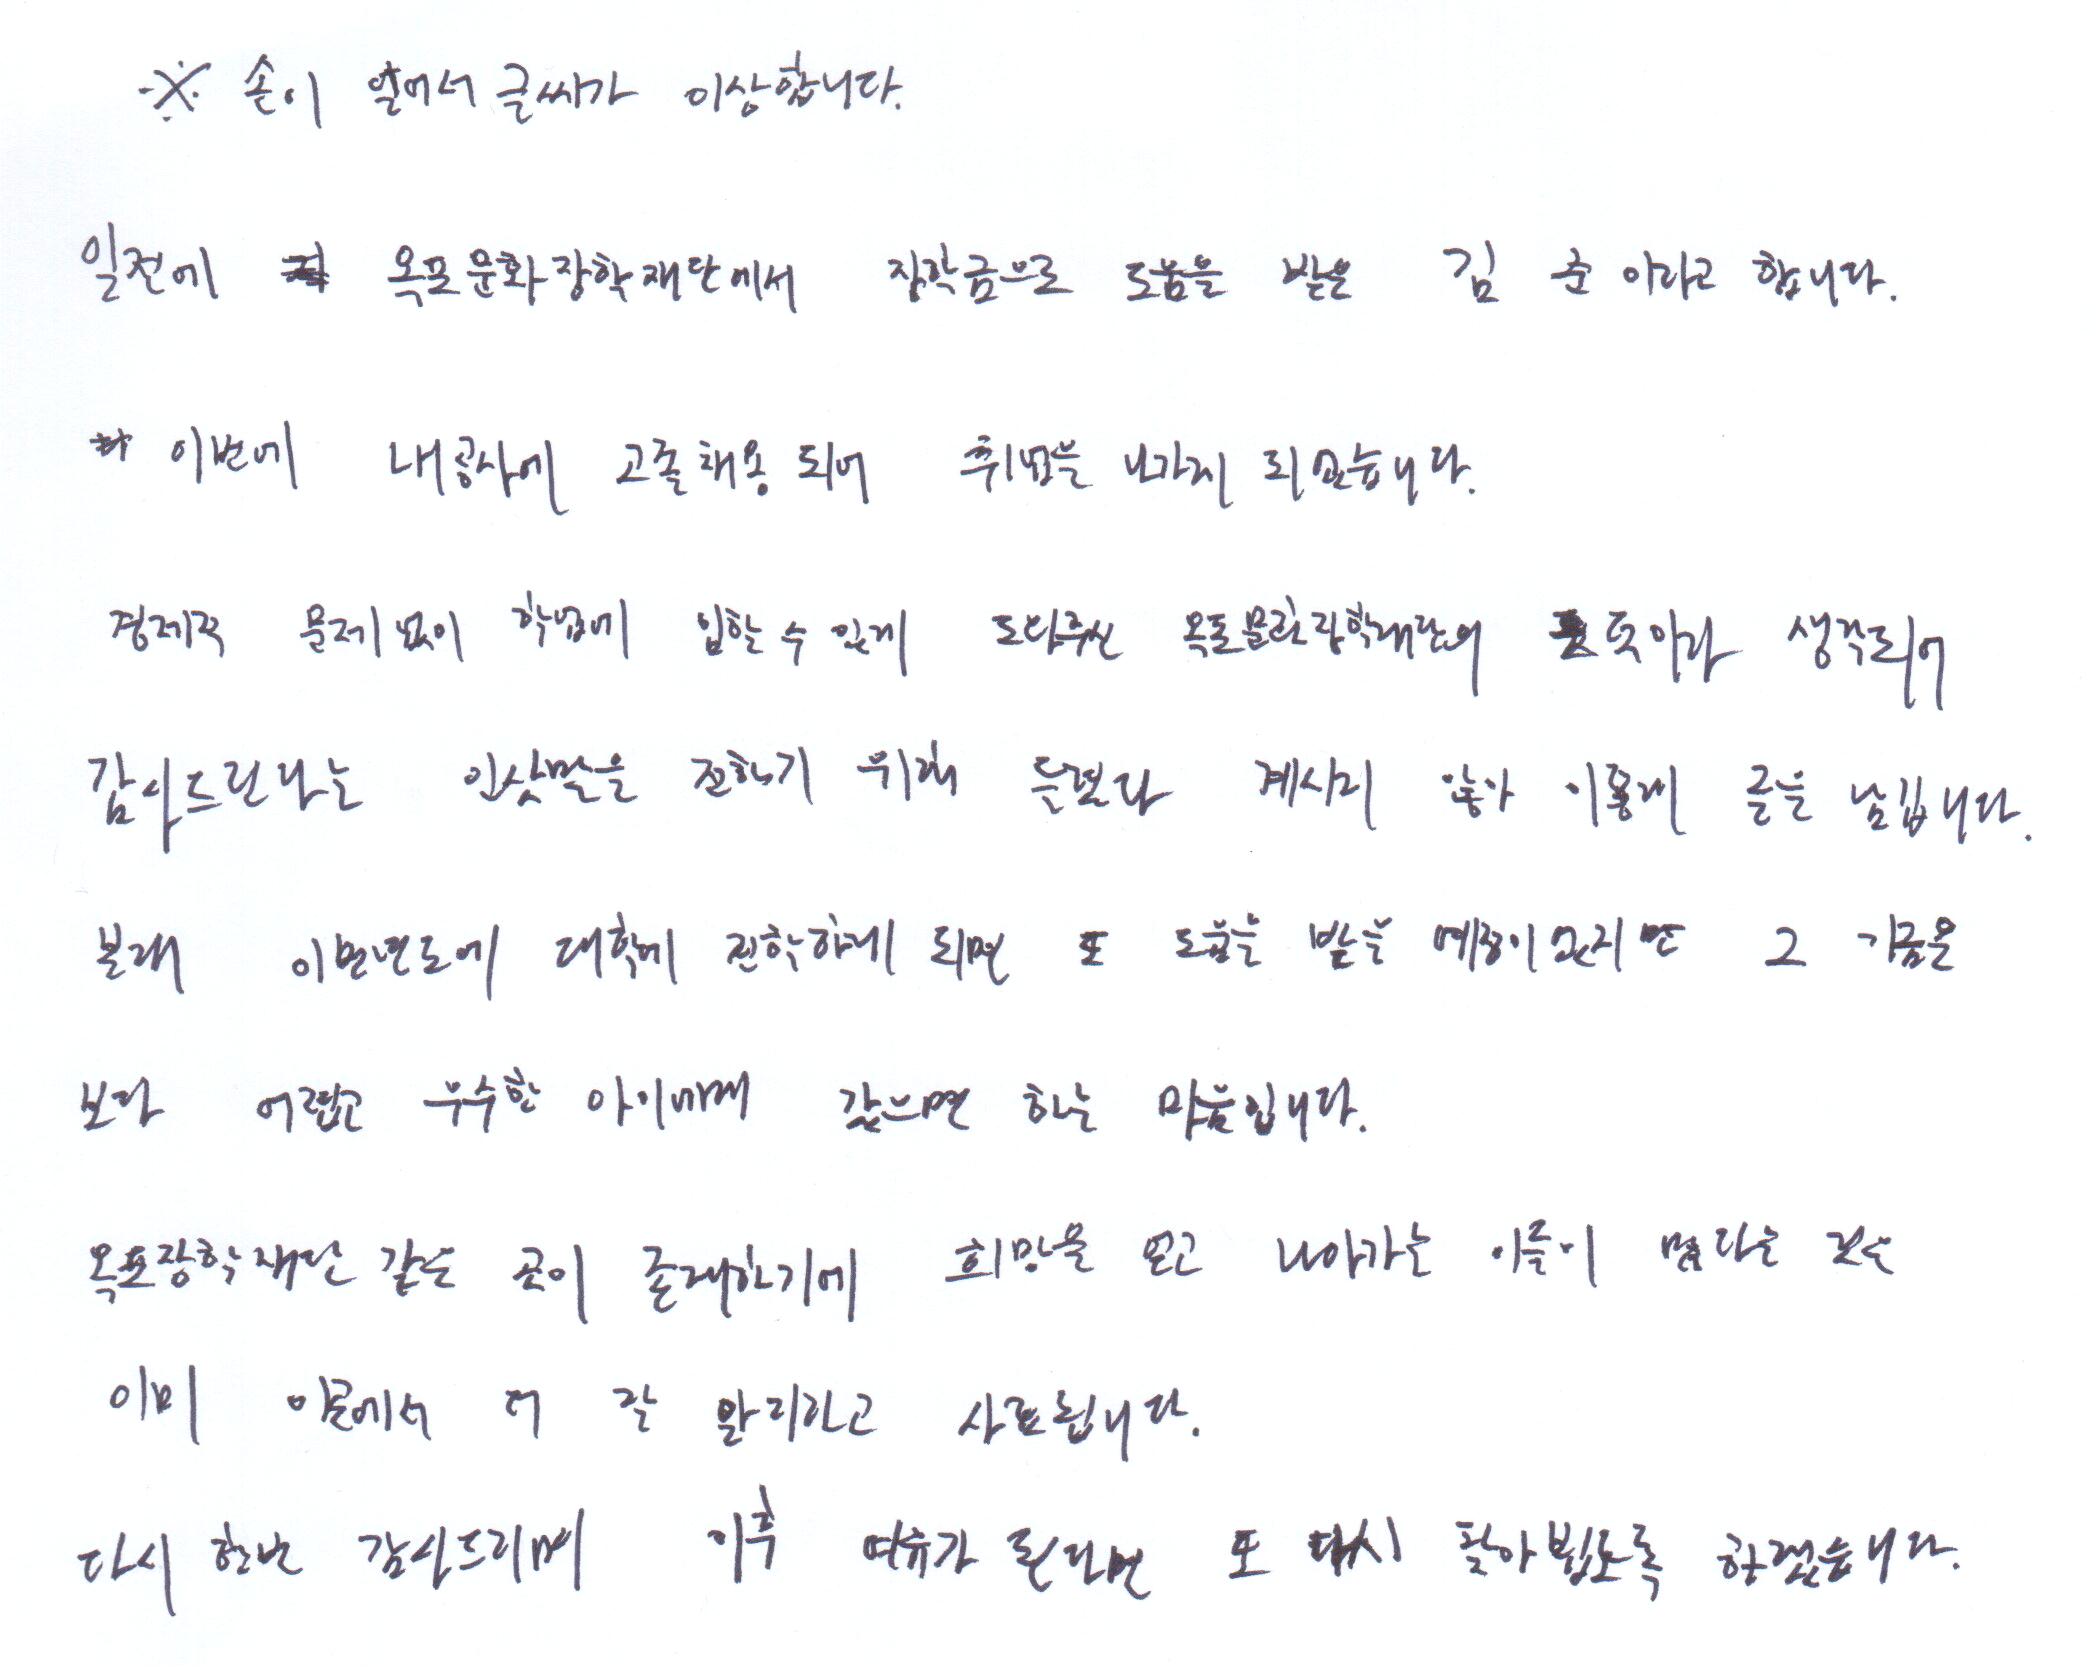 ※ 손이 얼어서 글씨가 이상합니다.
일전에 옥포문화장학재단에서 장학금으로 도움을 받은 김 순 이라고 합니다.
이번에 공사에 고졸채용 되어 취업을 나가게 되었습니다.
경제적 문제없이 학업에 임할 수 있게 도와주신 옥포문화장학재단의 덕이라 생각되어
감사드린다는 인삿말을 전하기 위해 들렸다 계시지 않아 이렇게 글을 남깁니다.
본래 이번년도에 대학에 진학하게 되면 또 도움을 받을 예정이었지만 그 기금은
보다 어렵고 우수한 아이에게 갔으면 하는 마음입니다.
옥포장학재단 같은 곳이 존재하기에 희망을 얻고 나아가는 이들이 많다는 것은
이미 이곳에서 더 잘 알리라고 사료됩니다.
다시 한번 감사드리며 이후 여유가 된다면 또 다시 찾아뵙도록 하겠습니다.